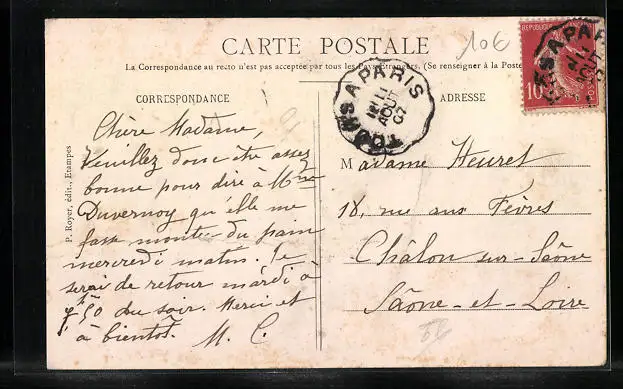 CARTE POSTALE
10€
La Correspondance au recto n'est pas acceptée par tous les Pays Etrangers. (Se renseigner à la Poste
CORRESPONDANCE
ADRESSE
P. Royer, édit., Etampes
Chère Madame,
Veuillez donc être assez
bonne pour dire à Mme
Duvernoy qu'elle me
fasse monter du pain
mercredi matin. Je
serai de retour mardi à
7h50 du soir. Merci et
à bientôt. M. C.
TOURS A PARIS
11
AOUT
07
Madame Heuret
18, rue aux Fèvres
Châlon-sur-Saône
Saône-et-Loire
10
A PARIS